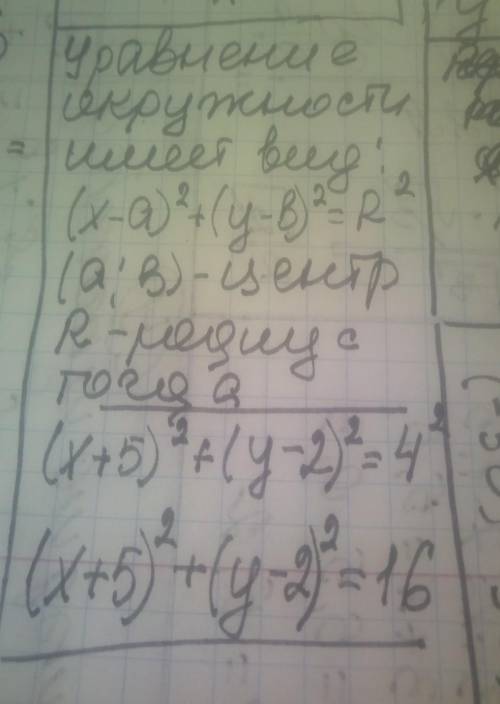 уравнение
окружности
имеет вид:
(x-a)²+(y-в)²=R²
(a;в)-центр
R-радиус
тогда
(x+5)²+(y-2)²=4²
(x+5)²+(y-2)²=16